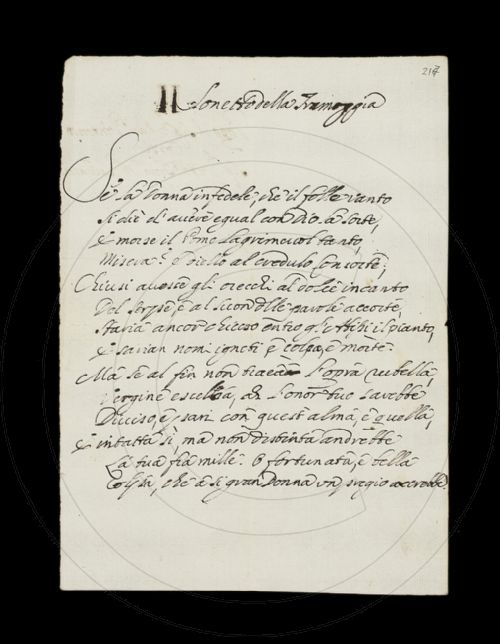 217
Il Sonetto della Tramoggia
Se la Donna infedele, che il folle vanto
Si diè d'avere egual con Dio la sorte,
e morse il lagrimevol
Misera? e diello al credulo consorte;
Chiusi avesse gli orecchi al dolce incanto
Del serpe, e al suon delle parole accorte,
Staria ancor chiuso entro gl' il pianto,
e sarian nomi ignoti e colpa, e morte.
Ma se al fin non l'opra rubella,
Vergine eccelsa, ah l'onor tuo sarebbe
Diviso, e sari con quest'alma, e quella,
e intatta sì, ma non distinta andrebbe
La tua fra mille. O fortunata, e bella
Colpa, che a sì gran Donna un pregio accrebbe.